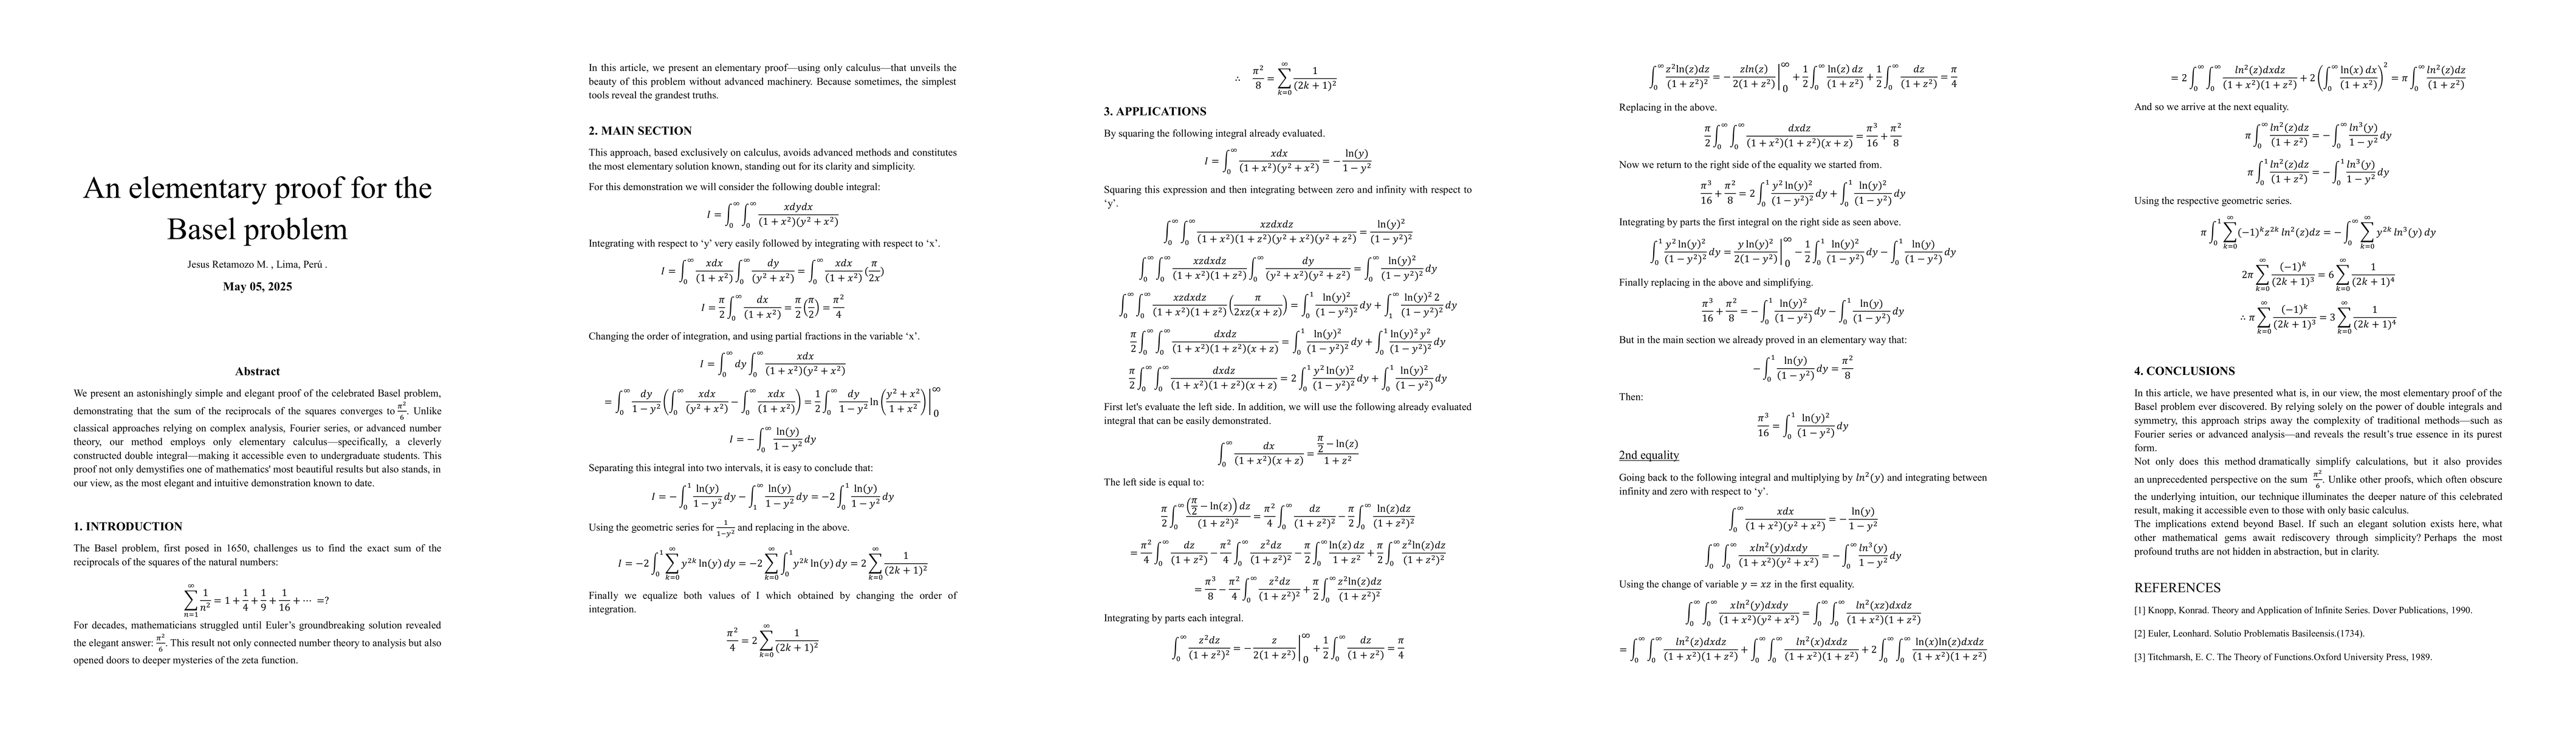 An elementary proof for the
Basel problem
Jesus Retamozo M. , Lima, Perú .
May 05, 2025
Abstract
We present an astonishingly simple and elegant proof of the celebrated Basel problem,
demonstrating that the sum of the reciprocals of the squares converges to π²/6. Unlike
classical approaches relying on complex analysis, Fourier series, or advanced number
theory, our method employs only elementary calculus—specifically, a cleverly
constructed double integral—making it accessible even to undergraduate students. This
proof not only demystifies one of mathematics' most beautiful results but also stands, in
our view, as the most elegant and intuitive demonstration known to date.
1. INTRODUCTION
The Basel problem, first posed in 1650, challenges us to find the exact sum of the
reciprocals of the squares of the natural numbers:
∑_{n=1}^{∞} 1/n² = 1 + 1/4 + 1/9 + 1/16 + ⋯ =?
For decades, mathematicians struggled until Euler’s groundbreaking solution revealed
the elegant answer: π²/6. This result not only connected number theory to analysis but also
opened doors to deeper mysteries of the zeta function.
In this article, we present an elementary proof—using only calculus—that unveils the
beauty of this problem without advanced machinery. Because sometimes, the simplest
tools reveal the grandest truths.
2. MAIN SECTION
This approach, based exclusively on calculus, avoids advanced methods and constitutes
the most elementary solution known, standing out for its clarity and simplicity.
For this demonstration we will consider the following double integral:
I = ∫_0^∞ ∫_0^∞ xdydx/((1 + x²)(y² + x²))
Integrating with respect to ‘y’ very easily followed by integrating with respect to ‘x’.
I = ∫_0^∞ xdx/(1 + x²) ∫_0^∞ dy/(y² + x²) = ∫_0^∞ xdx/(1 + x²) (π/2x)
I = π/2 ∫_0^∞ dx/(1 + x²) = π/2 (π/2) = π²/4
Changing the order of integration, and using partial fractions in the variable ‘x’.
I = ∫_0^∞ dy ∫_0^∞ xdx/((1 + x²)(y² + x²))
= ∫_0^∞ dy/(1 − y²) (∫_0^∞ xdx/(y² + x²) − ∫_0^∞ xdx/(1 + x²)) = 1/2 ∫_0^∞ dy/(1 − y²) ln((y² + x²)/(1 + x²))|_0^∞
I = − ∫_0^∞ ln(y)/(1 − y²) dy
Separating this integral into two intervals, it is easy to conclude that:
I = − ∫_0^1 ln(y)/(1 − y²) dy − ∫_1^∞ ln(y)/(1 − y²) dy = −2 ∫_0^1 ln(y)/(1 − y²) dy
Using the geometric series for 1/(1−y²) and replacing in the above.
I = −2 ∫_0^1 ∑_{k=0}^{∞} y^{2k} ln(y) dy = −2 ∑_{k=0}^{∞} ∫_0^1 y^{2k} ln(y) dy = 2 ∑_{k=0}^{∞} 1/(2k + 1)²
Finally we equalize both values of I which obtained by changing the order of
integration.
π²/4 = 2 ∑_{k=0}^{∞} 1/(2k + 1)²
∴ π²/8 = ∑_{k=0}^{∞} 1/(2k + 1)²
3. APPLICATIONS
By squaring the following integral already evaluated.
I = ∫_0^∞ xdx/((1 + x²)(y² + x²)) = − ln(y)/(1 − y²)
Squaring this expression and then integrating between zero and infinity with respect to
‘y’.
∫_0^∞ ∫_0^∞ xzdxdz/((1 + x²)(1 + z²)(y² + x²)(y² + z²)) = ln(y)²/(1 − y²)²
∫_0^∞ ∫_0^∞ xzdxdz/((1 + x²)(1 + z²)) ∫_0^∞ dy/((y² + x²)(y² + z²)) = ∫_0^∞ ln(y)²/(1 − y²)² dy
∫_0^∞ ∫_0^∞ xzdxdz/((1 + x²)(1 + z²)) (π/(2xz(x + z))) = ∫_0^1 ln(y)²/(1 − y²)² dy + ∫_1^∞ ln(y)² 2/(1 − y²)² dy
π/2 ∫_0^∞ ∫_0^∞ dxdz/((1 + x²)(1 + z²)(x + z)) = ∫_0^1 ln(y)²/(1 − y²)² dy + ∫_0^1 ln(y)² y²/(1 − y²)² dy
π/2 ∫_0^∞ ∫_0^∞ dxdz/((1 + x²)(1 + z²)(x + z)) = 2 ∫_0^1 y² ln(y)²/(1 − y²)² dy + ∫_0^1 ln(y)²/(1 − y²) dy
First let's evaluate the left side. In addition, we will use the following already evaluated
integral that can be easily demonstrated.
∫_0^∞ dx/((1 + x²)(x + z)) = (π/2 − ln(z))/(1 + z²)
The left side is equal to:
π/2 ∫_0^∞ (π/2 − ln(z)) dz/(1 + z²)² = π²/4 ∫_0^∞ dz/(1 + z²)² − π/2 ∫_0^∞ ln(z)dz/(1 + z²)²
= π²/4 ∫_0^∞ dz/(1 + z²) − π²/4 ∫_0^∞ z²dz/(1 + z²)² − π/2 ∫_0^∞ ln(z) dz/(1 + z²) + π/2 ∫_0^∞ z²ln(z)dz/(1 + z²)²
= π³/8 − π²/4 ∫_0^∞ z²dz/(1 + z²)² + π/2 ∫_0^∞ z²ln(z)dz/(1 + z²)²
Integrating by parts each integral.
∫_0^∞ z²dz/(1 + z²)² = − z/(2(1 + z²))|_0^∞ + 1/2 ∫_0^∞ dz/(1 + z²) = π/4
∫_0^∞ z²ln(z)dz/(1 + z²)² = − zln(z)/(2(1 + z²))|_0^∞ + 1/2 ∫_0^∞ ln(z) dz/(1 + z²) + 1/2 ∫_0^∞ dz/(1 + z²) = π/4
Replacing in the above.
π/2 ∫_0^∞ ∫_0^∞ dxdz/((1 + x²)(1 + z²)(x + z)) = π³/16 + π²/8
Now we return to the right side of the equality we started from.
π³/16 + π²/8 = 2 ∫_0^1 y² ln(y)²/(1 − y²)² dy + ∫_0^1 ln(y)²/(1 − y²) dy
Integrating by parts the first integral on the right side as seen above.
∫_0^1 y² ln(y)²/(1 − y²)² dy = y ln(y)²/(2(1 − y²))|_0^∞ − 1/2 ∫_0^1 ln(y)²/(1 − y²) dy − ∫_0^1 ln(y)/(1 − y²) dy
Finally replacing in the above and simplifying.
π³/16 + π²/8 = − ∫_0^1 ln(y)²/(1 − y²) dy − ∫_0^1 ln(y)/(1 − y²) dy
But in the main section we already proved in an elementary way that:
− ∫_0^1 ln(y)/(1 − y²) dy = π²/8
Then:
π³/16 = ∫_0^1 ln(y)²/(1 − y²) dy
2nd equality
Going back to the following integral and multiplying by ln²(y) and integrating between
infinity and zero with respect to ‘y’.
∫_0^∞ xdx/((1 + x²)(y² + x²)) = − ln(y)/(1 − y²)
∫_0^∞ ∫_0^∞ xln²(y)dxdy/((1 + x²)(y² + x²)) = − ∫_0^∞ ln³(y)/(1 − y²) dy
Using the change of variable y = xz in the first equality.
∫_0^∞ ∫_0^∞ xln²(y)dxdy/((1 + x²)(y² + x²)) = ∫_0^∞ ∫_0^∞ ln²(xz)dxdz/((1 + x²)(1 + z²))
= ∫_0^∞ ∫_0^∞ ln²(z)dxdz/((1 + x²)(1 + z²)) + ∫_0^∞ ∫_0^∞ ln²(x)dxdz/((1 + x²)(1 + z²)) + 2 ∫_0^∞ ∫_0^∞ ln(x)ln(z)dxdz/((1 + x²)(1 + z²))
= 2 ∫_0^∞ ∫_0^∞ ln²(z)dxdz/((1 + x²)(1 + z²)) + 2 (∫_0^∞ ln(x) dx/(1 + x²))² = π ∫_0^∞ ln²(z)dz/(1 + z²)
And so we arrive at the next equality.
π ∫_0^∞ ln²(z)dz/(1 + z²) = − ∫_0^∞ ln³(y)/(1 − y²) dy
π ∫_0^1 ln²(z)dz/(1 + z²) = − ∫_0^1 ln³(y)/(1 − y²) dy
Using the respective geometric series.
π ∫_0^1 ∑_{k=0}^{∞} (−1)^k z^{2k} ln²(z) dz = − ∫_0^∞ ∑_{k=0}^{∞} y^{2k} ln³(y) dy
2π ∑_{k=0}^{∞} (−1)^k/(2k + 1)³ = 6 ∑_{k=0}^{∞} 1/(2k + 1)⁴
∴ π ∑_{k=0}^{∞} (−1)^k/(2k + 1)³ = 3 ∑_{k=0}^{∞} 1/(2k + 1)⁴
4. CONCLUSIONS
In this article, we have presented what is, in our view, the most elementary proof of the
Basel problem ever discovered. By relying solely on the power of double integrals and
symmetry, this approach strips away the complexity of traditional methods—such as
Fourier series or advanced analysis—and reveals the result’s true essence in its purest
form.
Not only does this method dramatically simplify calculations, but it also provides
an unprecedented perspective on the sum π²/6. Unlike other proofs, which often obscure
the underlying intuition, our technique illuminates the deeper nature of this celebrated
result, making it accessible even to those with only basic calculus.
The implications extend beyond Basel. If such an elegant solution exists here, what
other mathematical gems await rediscovery through simplicity? Perhaps the most
profound truths are not hidden in abstraction, but in clarity.
REFERENCES
[1] Knopp, Konrad. Theory and Application of Infinite Series. Dover Publications, 1990.
[2] Euler, Leonhard. Solutio Problematis Basileensis.(1734).
[3] Titchmarsh, E. C. The Theory of Functions.Oxford University Press, 1989.